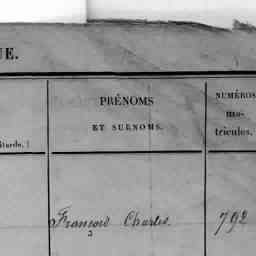 UE.
PRÉNOMS
ET SURNOMS.
NUMÉROS
ma-
tricules.
François Charles.
792